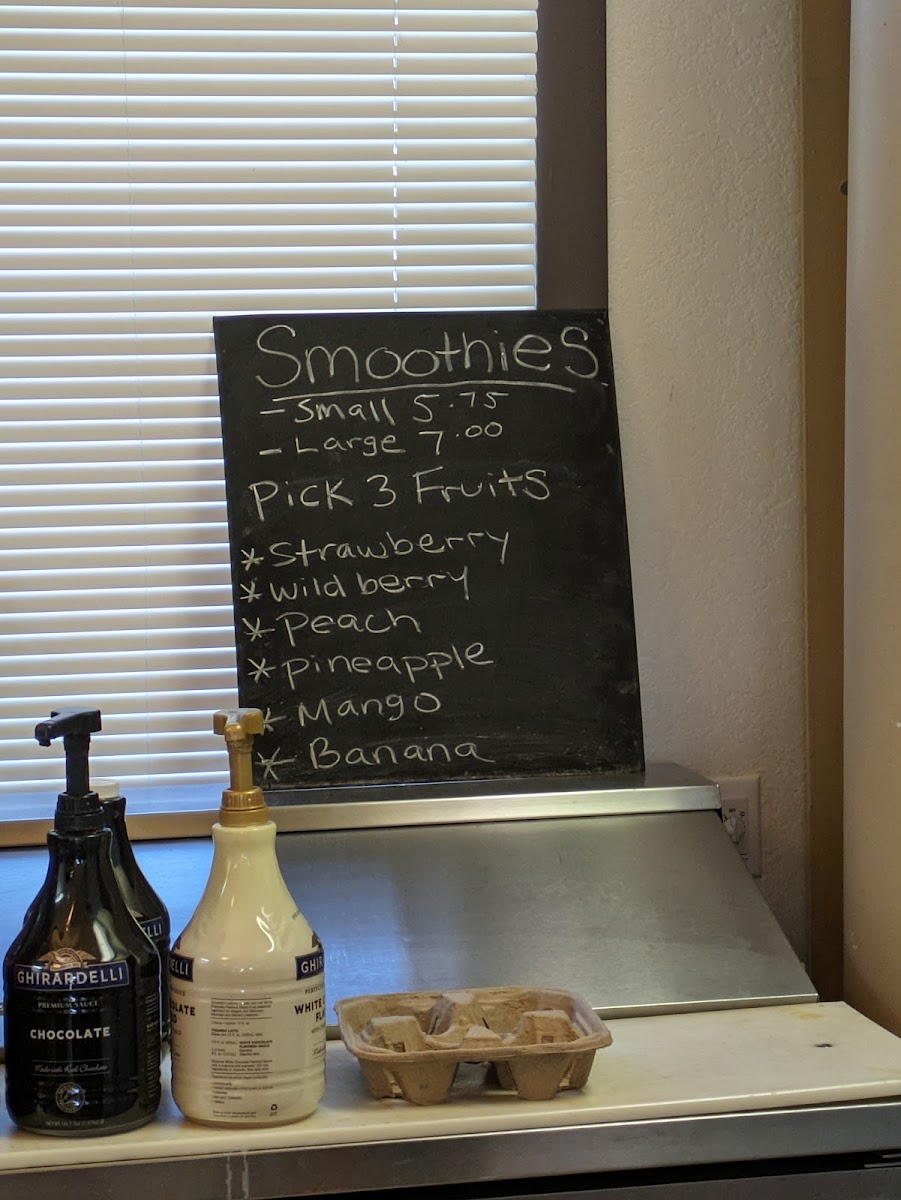 Smoothies
- Small 5.75
- Large 7.00
Pick 3 Fruits
* Strawberry
* Wild berry
* Peach
* Pineapple
* Mango
* Banana
GHIRARDELLI
PREMIUM SAUCE
CHOCOLATE
Made with Real Chocolate
ELLI
ELLI
GHIR
WHITE